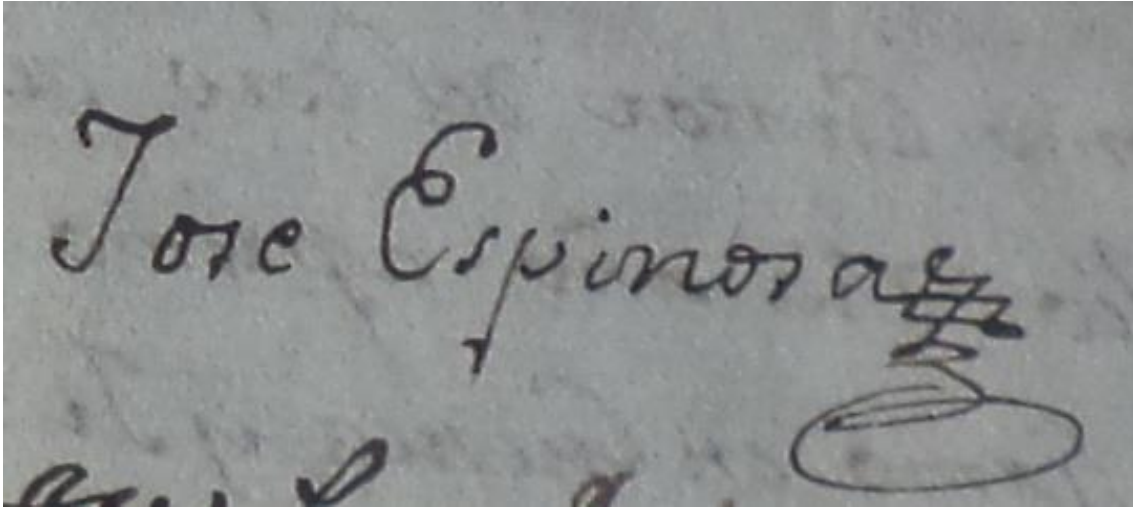 Jose Espinosa